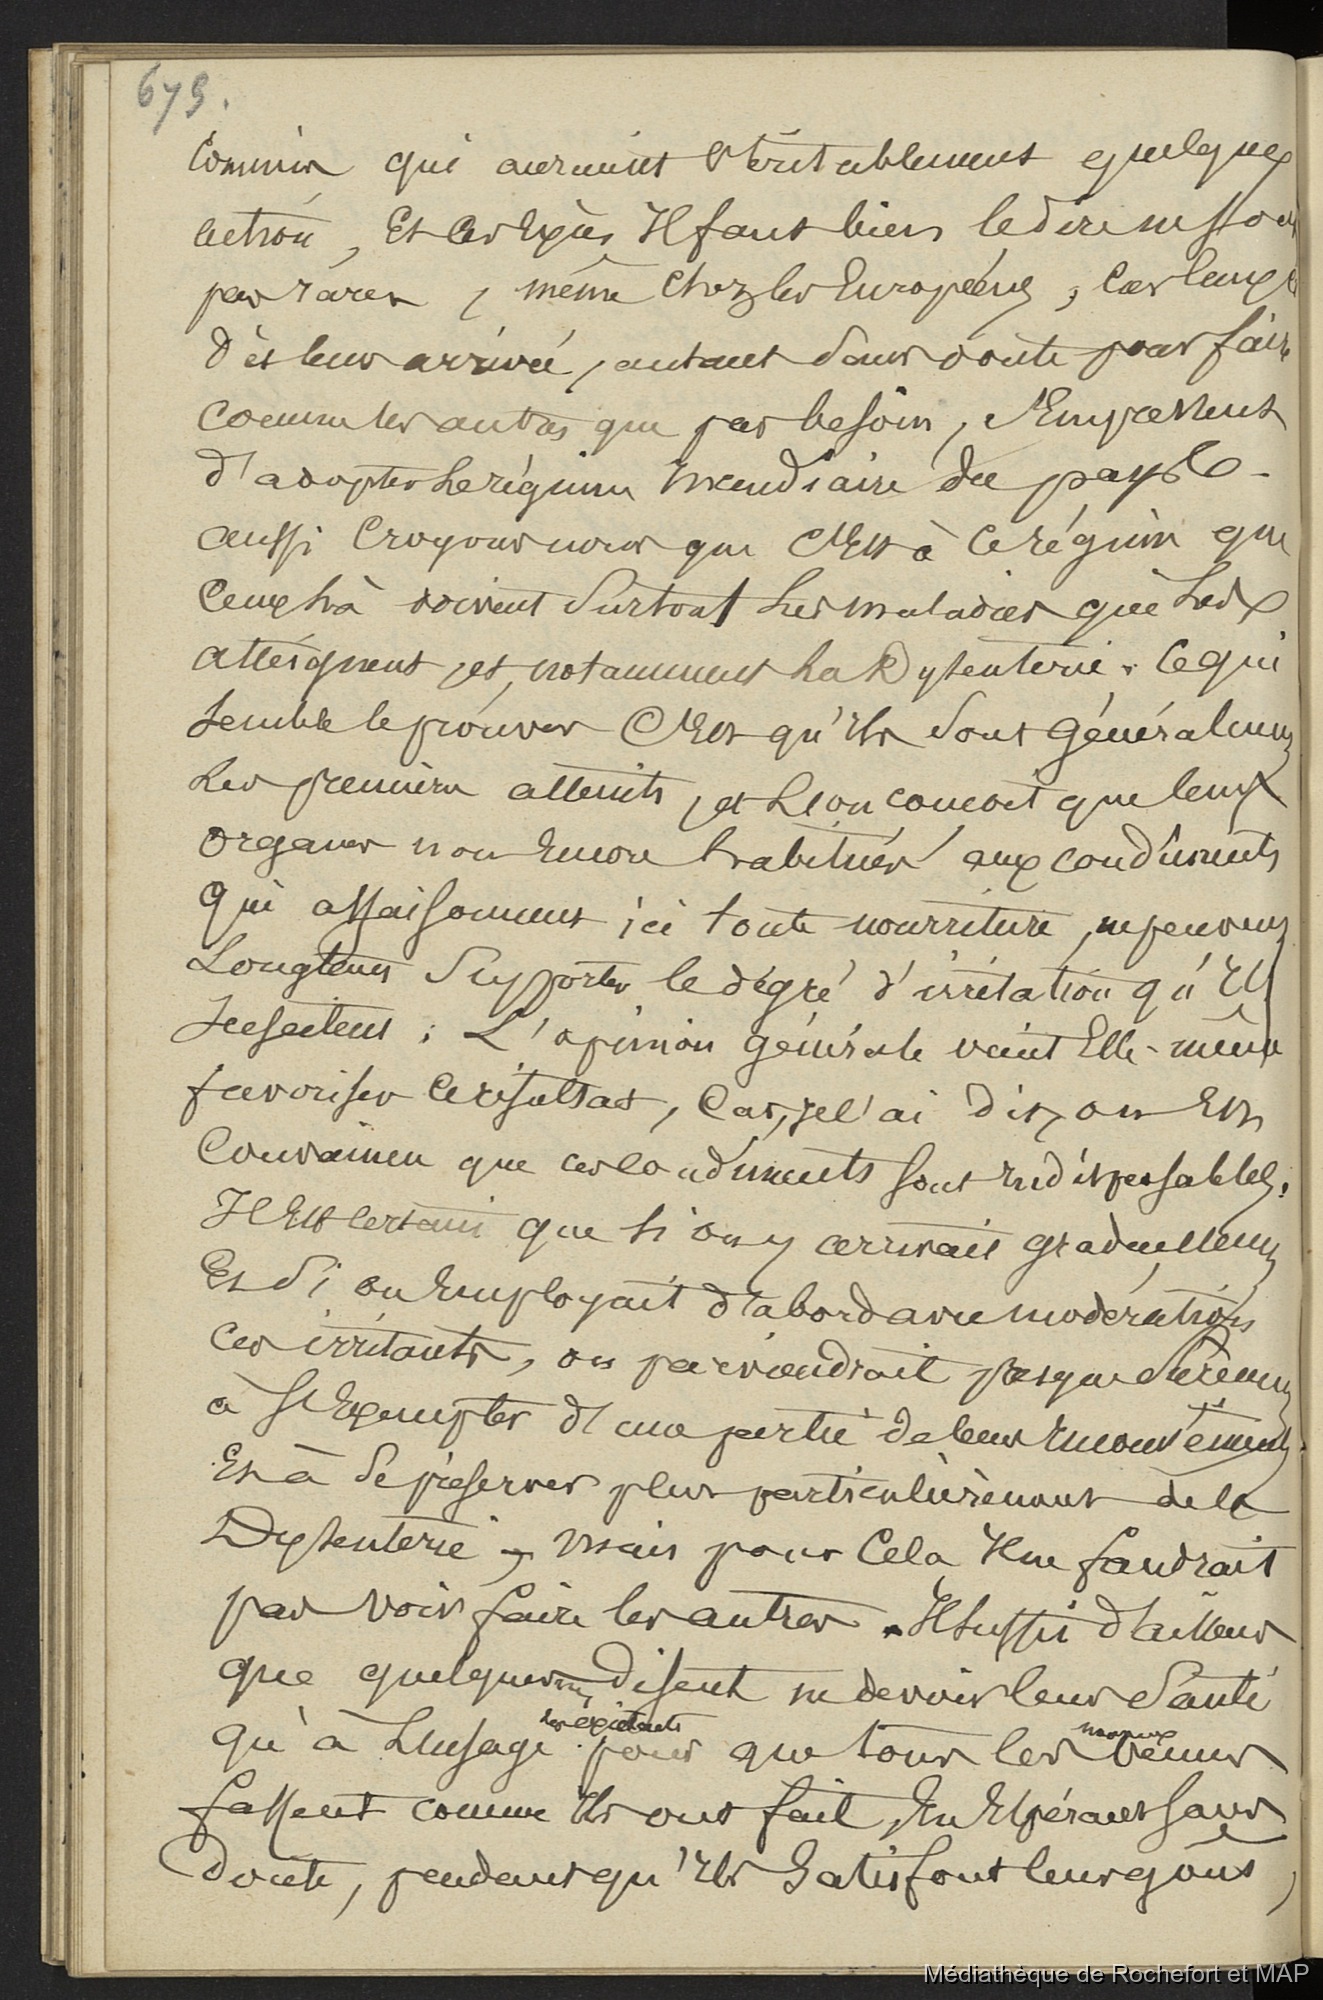 679.
qui auraient véritablement quelque
action, Et ces Excès, Il faut bien le dire ne sont
pas rares, même chez les Européens, car ceux ci
dès leur arrivée, autant sans doute pour faire
comme les autres que par besoin, s'Empressent
d'adopter le régime incendiaire du pays.
aussi Croyons nous que c'Est à ce régime que
ceux là doivent surtout les maladies qui les
atteignent, et, notamment la Dysenterie. Ce qui
semble le prouver C'Est qu'Ils sont généralement
les premiers atteints, et l'on concoit que leurs
organes non Encore habitués aux condiments
qui assaisonnent ici toute nourriture, ne peuvent
Longtems supporter le dégré d'irritation qu'Ils
suscitent. L'opinion générale vient Elle-même
favoriser ce résultat, Car, je l'ai dit, on Est
Convaincu que ces condiments sont Indispensables.
Il Est certain que si on y arrivait graduellement
Et si on Employait d'abord avec modération
ces irritants, on parviendrait presque sûrement
à s'Exempter d'une partie de leurs inconvénients
Et à se préserver plus particulièrement de la
Dysenterie, mais pour cela Il ne faudrait
pas voir faire les autres. Il suffit d'ailleurs
que quelques uns disent ne devoir leur santé
qu'à l'usage des excitants pour que tous les nouveaux venus
fassent comme Ils ont fait, En Espérant sans
doute, pendant qu'Ils satisfont leurs goûts,
Médiathèque de Rochefort et MAP